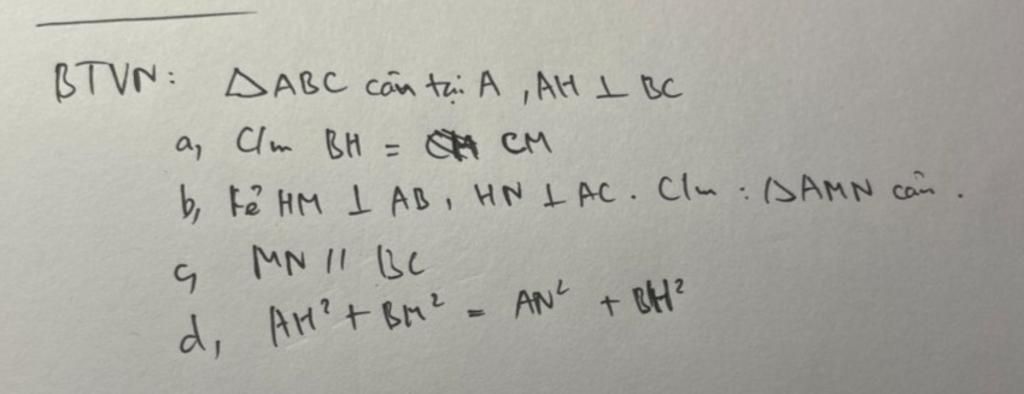 BTVN: △ABC cân tại A, AH ⊥ BC
a, C/m BH = CM
b, Kẻ HM ⊥ AB, HN ⊥ AC. C/m: △AMN cân.
c, MN // BC
d, AH² + BM² = AN² + BH²